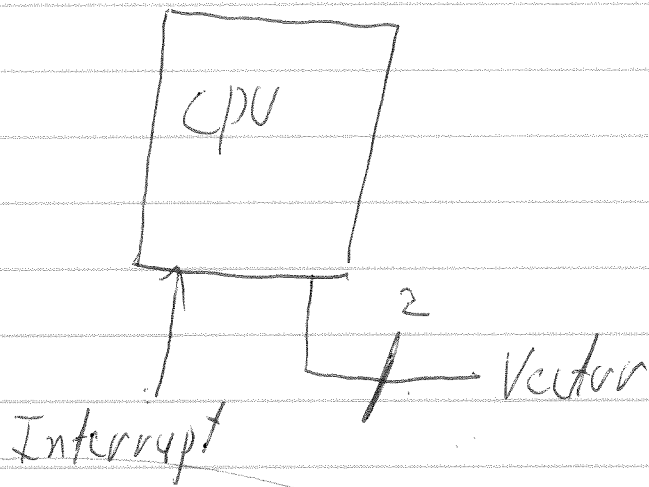 CPU
2
Vector
Interrupt